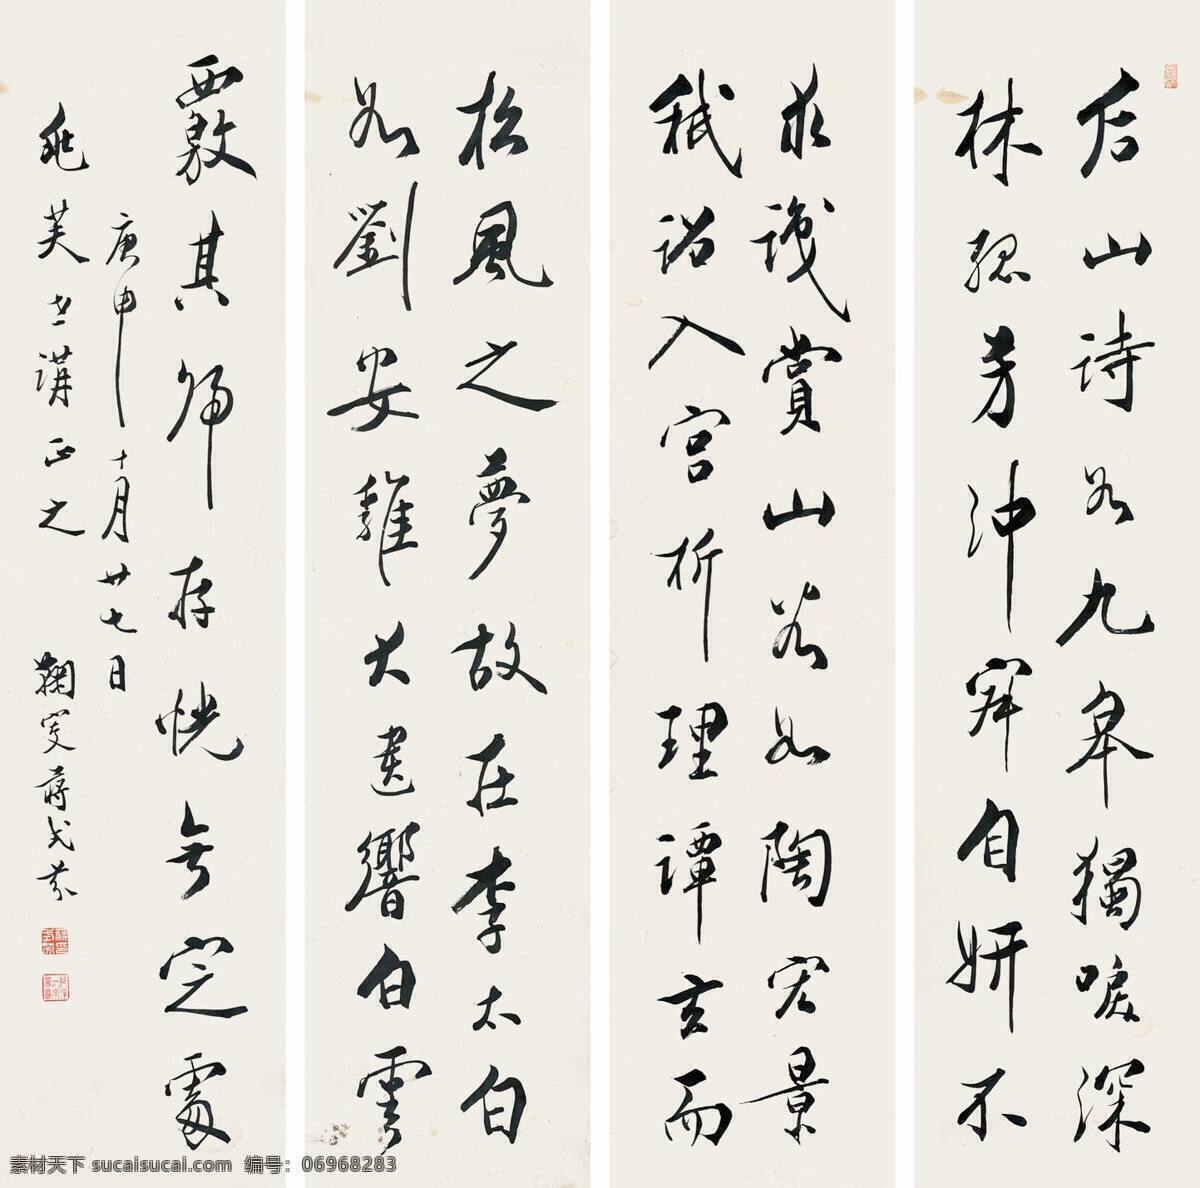 后山诗如九皋獨唳深
林孤芳沖寂自妍不
求識賞山谷如陶宏景
祇詔入宮析理譚玄而
松風之夢故在李太白
如劉安雞犬遺響白雲
覈其歸存恍無定處
庚申十月廿七日
芙世講正之 鞠叟蔣式芬
素材天下 sucaisucai.com 编号：06968283